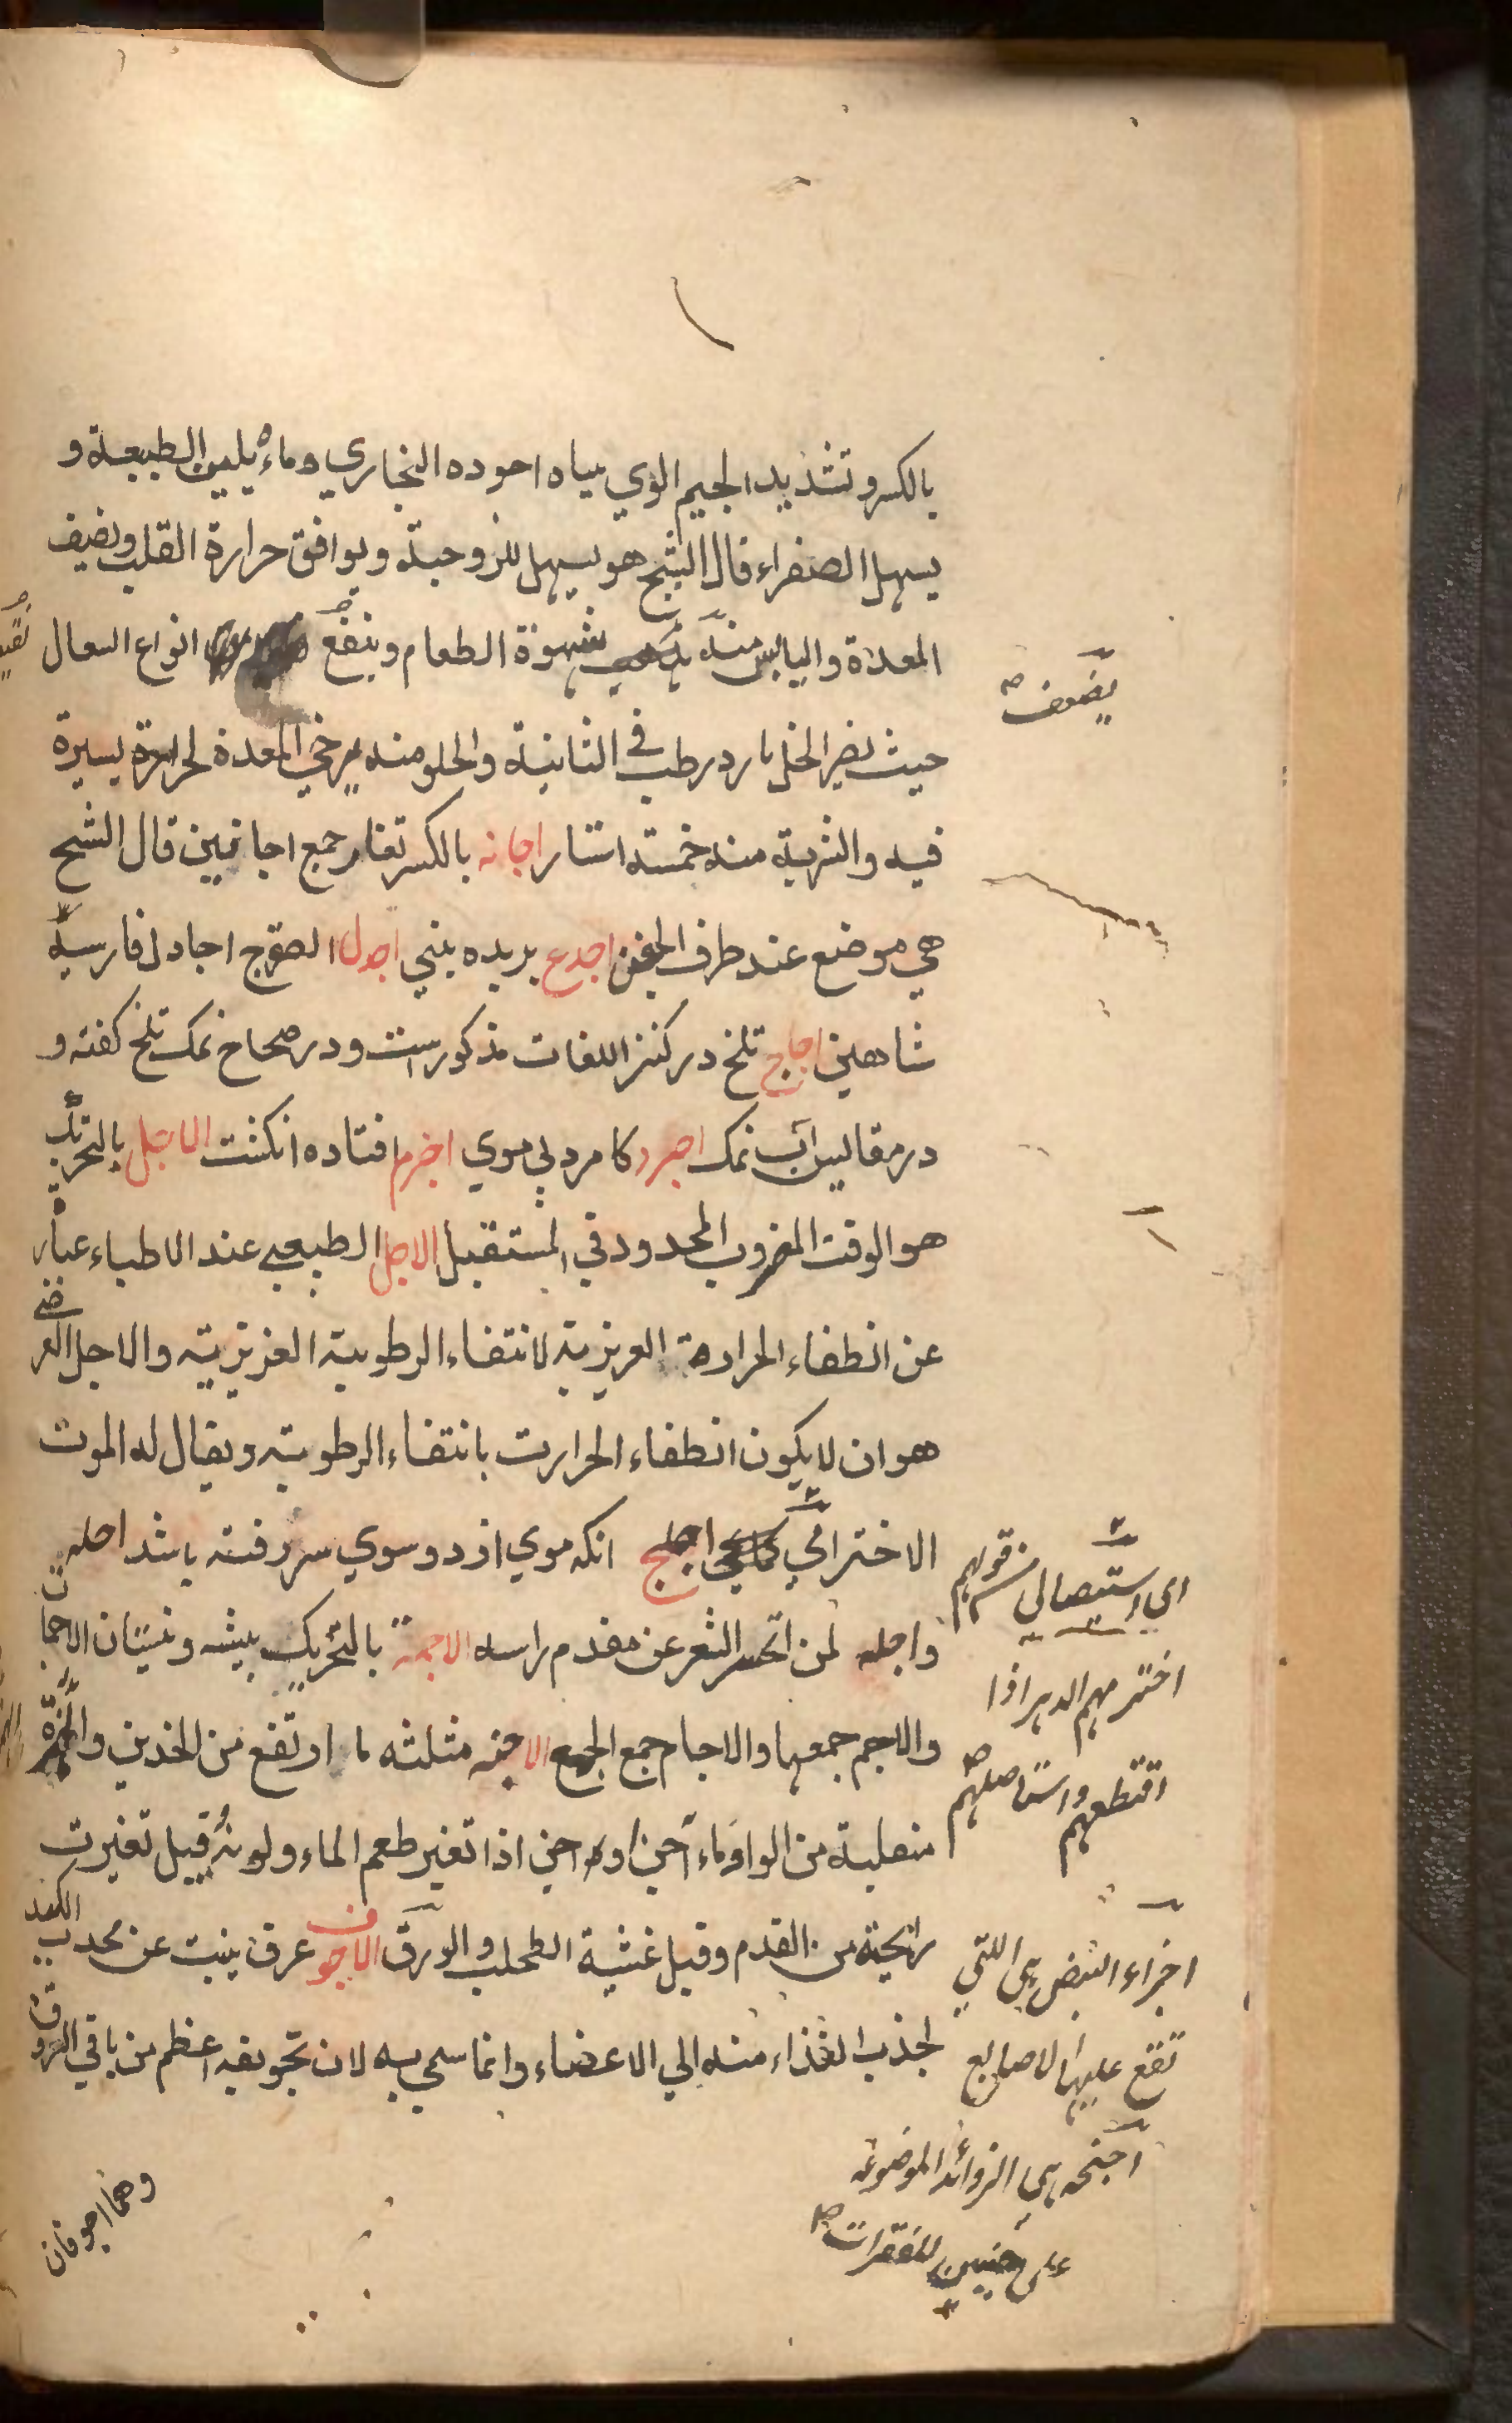 بالكسر و تشديد الجيم الوي سياه اجوده البخاري وماءه يلين الطبيعة و
يسهل الصفراء قال الشيخ هو يسهل للزوجيته ويوافق حرارة القلب ويضيف
المعدة واليابس منه شهوة الطعام وينفع انواع السعال
يضعف
حيث يضر الخل بارد رطب في الثانية والحلو منه يرخي المعدة لحرارة يسيرة
فيه والشربة منه خمسة استار اجانه بالكسر تغار جمع اجانين قال الشيخ
هي موضع عند طرف الجفن اجدع بريده بيني اجدل الصقر ج اجادل فارسية
شاهين اجاج تلخ در كنز اللغات مذكور است ودر صحاح نمك تلخ كفته و
در مقاييس آب نمك اجرد كا مرد بي موي اجزم افتاده انكشت الاجل بالتحريك
هو الوقت المضروب المحدود في المستقبل الاجل الطبيعي عند الاطباء عبارة
عن انطفاء الحرارة الغريزية لانتفاء الرطوبة الغريزية والاجل العرضي
هو ان لا يكون انطفاء الحرارت بانتفاء الرطوبة ويقال له الموت
الاخترامي اجلح انكه موي از دو سوي سر رفته باشد اجله
واجله لمن انحسر الشعر عن مقدم راسه الاجمة بالتحريك بيشه ونيستان الاجمات
والاجم جمعها والاجام جمع الجمع الاجنه مثلثه ما ارتفع من الخدين والهمزة
منقلبة من الواو ماء آجن اجن اذا تغير طعم الماء ولونه وقيل تغيرت
رايحته من القدم وقيل غشية الطحلب والورق الاجوف عرق ينبت عن محدب الكبد
لجذب الغذاء منه الي الاعضاء وانما سمي به لان تجويفه اعظم من باقي العروق
وهما اجوفان
اي استيصالي من قولهم
اخترمهم الدهر اذا
اقتطعهم واستاصلهم
اجزاء النبض هي اللتي
تقع عليها الاصابع
اجنحه هي الزوائد الموضوعه
على جنبين للفقرات